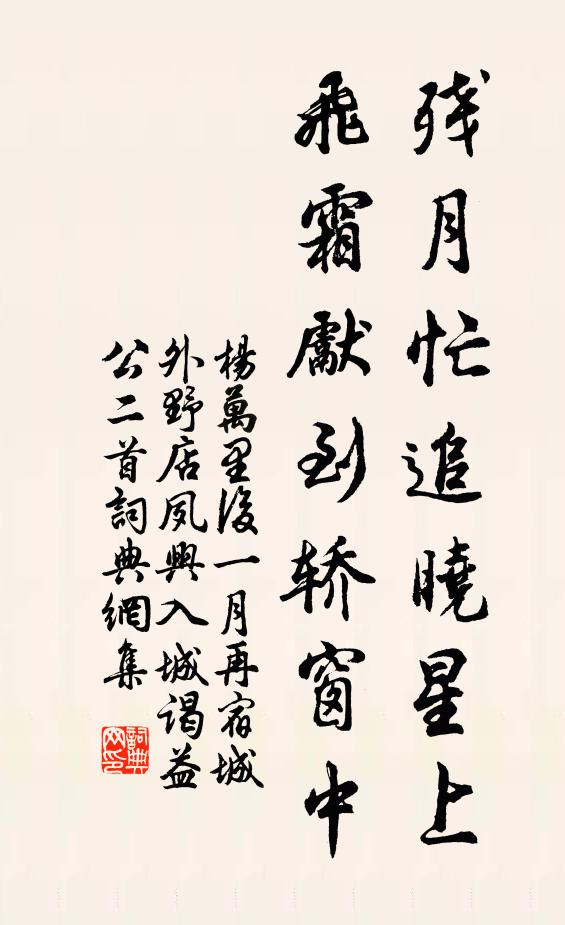 残月忙追曉星上
飛霜獻到轿窗中
楊萬里後一月再宿城
外野店夙興入城谒益
公二首詞典網集
詞典
网印